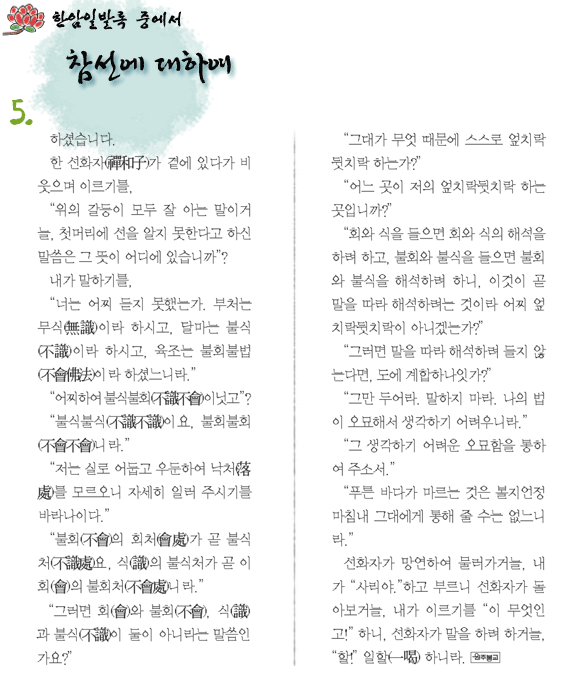 한암일발록 중에서
참선에 대하여
5.
하셨습니다.
한 선화자(禪和子)가 곁에 있다가 비
웃으며 이르기를,
“위의 갈등이 모두 잘 아는 말이거
늘, 첫머리에 선을 알지 못한다고 하신
말씀은 그 뜻이 어디에 있습니까”?
내가 말하기를,
“너는 어찌 듣지 못했는가. 부처는
무식(無識)이라 하시고, 달마는 불식
(不識)이라 하시고, 육조는 불회불법
(不會佛法)이라 하셨느니라.”
“어찌하여 불식불회(不識不會)이닛고”?
“불식불식(不識不識)이요, 불회불회
(不會不會)니라.”
“저는 실로 어둡고 우둔하여 낙처(落
處)를 모르오니 자세히 일러 주시기를
바라나이다.”
“불회(不會)의 회처(會處)가 곧 불식
처(不識處)요, 식(識)의 불식처가 곧 이
회(會)의 불회처(不會處)니라.”
“그러면 회(會)와 불회(不會), 식(識)
과 불식(不識)이 둘이 아니라는 말씀인
가요?”
“그대가 무엇 때문에 스스로 엎치락
뒷치락 하는가?”
“어느 곳이 저의 엎치락뒷치락 하는
곳입니까?”
“회와 식을 들으면 회와 식의 해석을
하려 하고, 불회와 불식을 들으면 불회
와 불식을 해석하려 하니, 이것이 곧
말을 따라 해석하려는 것이라 어찌 엎
치락뒷치락이 아니겠는가?”
“그러면 말을 따라 해석하려 들지 않
는다면, 도에 계합하나잇가?”
“그만 두어라. 말하지 마라. 나의 법
이 오묘해서 생각하기 어려우니라.”
“그 생각하기 어려운 오묘함을 통하
여 주소서.”
“푸른 바다가 마르는 것은 볼지언정
마침내 그대에게 통해 줄 수는 없느니
라.”
선화자가 망연하여 물러가거늘, 내
가 “사리야.”하고 부르니 선화자가 돌
아보거늘, 내가 이르기를 “이 무엇인
고!” 하니, 선화자가 말을 하려 하거늘,
“할!” 일할(一喝) 하니라.